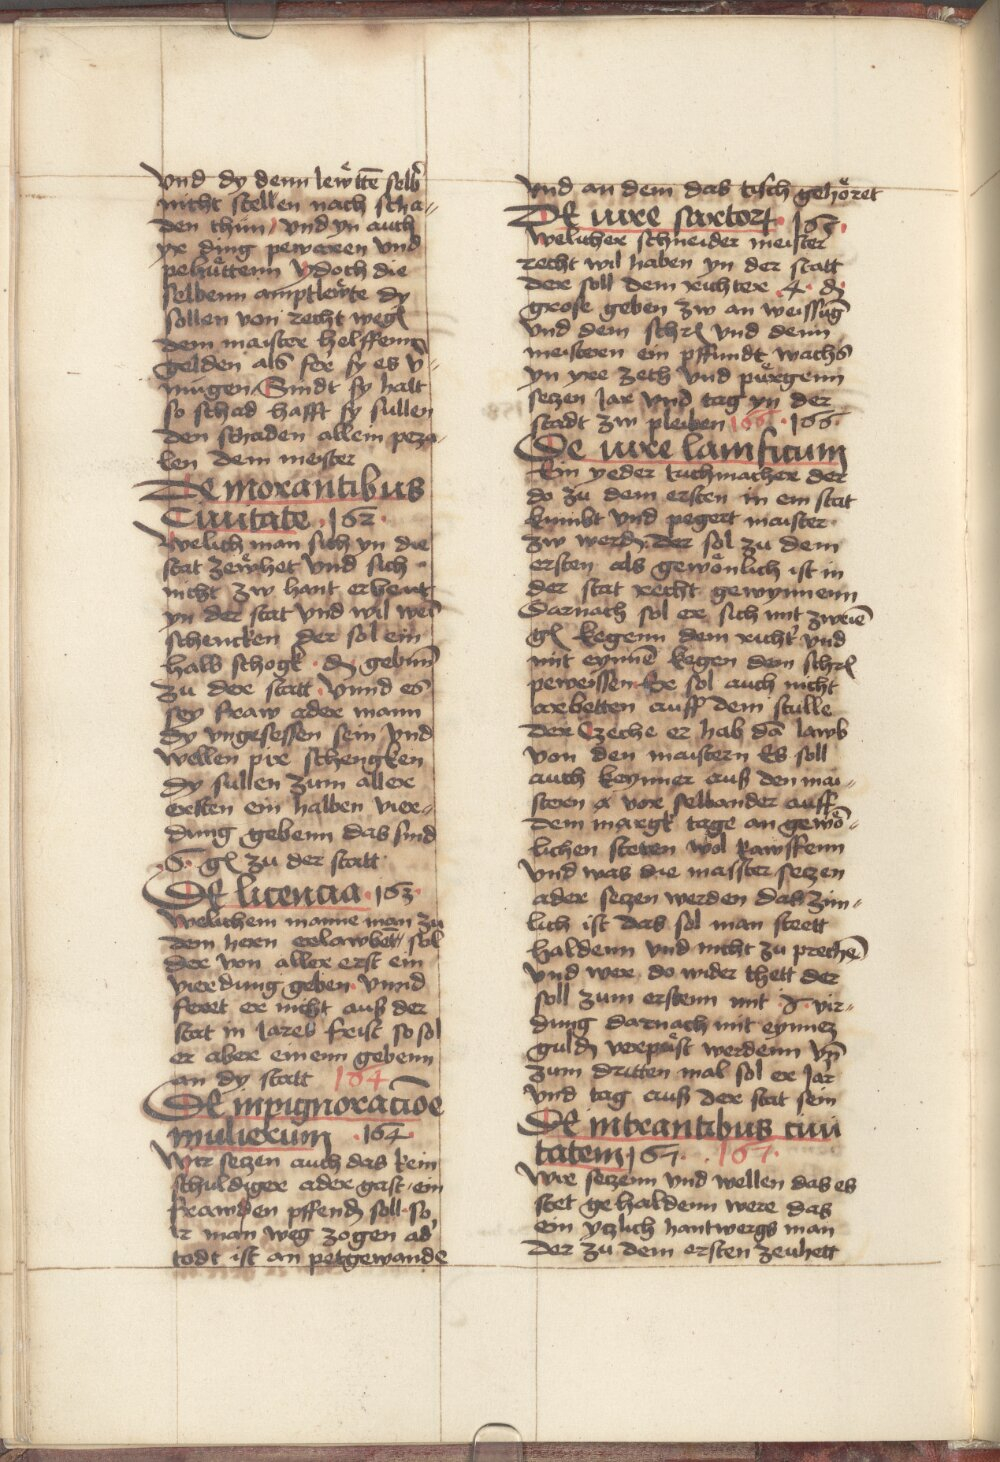 vnd dy denn lewͤttē selbᷤ
nicht stellen nach scha-
den thun / vnd yn auch
yr ding pewaren vnd
pehuͤttenn ydoch die
selbenn amptlewͤte dy
sollen von recht wegē
dem maister helffenn
gelden als fer sy es v-
mugen Sindt sy halt
so schad hafft sy sullen
den schaden allein peza-
len dem meister
De morantibus
Ciuitate 162
Welich man sich yn die
stat zewͤhet vnd sich
nicht zw hant erbeut
yn der stat vnd wil wein
schencken der sol ein
halb schogk gr gebnn
zu der statt vnnd es
sey fraw ader mann
dy vngesessen sein vnd
wellen pir schengken
dy sullen zum aller
ersten ein halben vier-
dung gebenn das sind
6 gr zu der statt
De licencia 163
Welichem manne man zu
dem heren erlawbett / sol
der von aller erst ein
vierdung geben vnnd
feret er nicht auß der
stat in Jares frist so sol
er aber einenn gebenn
an dy statt 164
De inpignoracīoe
mulierum 164
Wir seczen auch das kein
schuldiger ader gast ein
frawen pffendn soll so
ir man weg zogen ad
todt ist an petgewande
vnd an dem das tisch gehoͤret
De iure sartorꝝ 165
Welicher schneider meister
recht wil haben yn der statt
der soll dem richter 4 d
grose geben zw an weissūg
vnd dem schrꝭ vnd denn
meisteren ein pffundt wachs
yn yre zech vnd puͤrgenn
seczen Jar vnd tag yn der
stadt zw pleiben 166 166
De iure lanificum
Ein yeder tuchmacher der
do zu dem ersten in ein stat
kumbt vnd pegert maister
zw werdn der sol zu dem
ersten als gewoͤnlich ist in
der stat recht gewynnenn
Darnach sol er sich mit zwaiē
gꝭ kegenn dem richt vnd
mit eynnē kegen dem schrꝭ
peweissen Er sol auch nicht
arbetten auff dem stulle
der Czeche er hab dā lawb
von den maistern Es soll
auch keynner auß den mai-
stern a vor selbander auff
dem margk tage an gewoͤ-
lichen steten wol kawffenn
Vnd was die maister seczen
ader seczen werden das zim-
lich ist das sol man steett
haldenn vnd nicht zu prechē
Vnd wer do wider thett der
soll zum erstenn mit vir-
dung darnach mit eynnez
guldn verpuͤst werdenn vn̄
zum dritten mal sol er Jar
vnd tag auß der stat sein
De intrantibus ciui
tatem 167 167
Wir seczenn vnd wellen das es
stet gehaldenn were das
ein yczlich hantwergs man
der zu dem ersten zeuhett